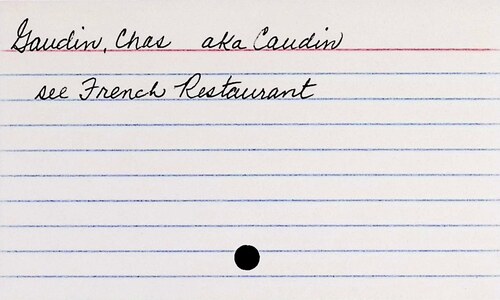 Gaudin, Chas aka Caudin
see French Restaurant